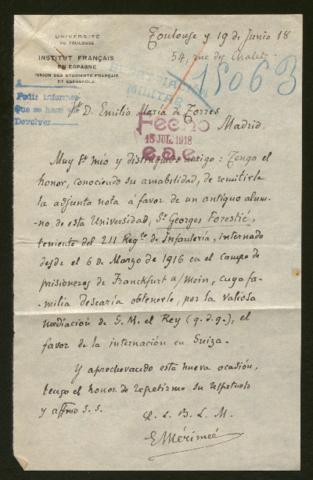 UNIVERSITÉ
DE TOULOUSE
INSTITUT FRANÇAIS
EN ESPAGNE
UNION DES ÉTUDIANTS FRANÇAIS
ET ESPAGNOLS
Toulouse y 19 de Junio 18
54, rue du Chalet
15063
A
Pedir informes
Que se haga por
Devolver
Sr. D. Emilio María de Torres
Madrid.
Fecho
15 JUL. 1918
Muy Sr. mio y distinguido amigo: Tengo el
honor, conociendo su amabilidad, de remitirle
la adjunta nota á favor de un antiguo alum-
no de esta Universidad, Sr. Georges Forestié,
teniente del 211 Regto. de Infantería, internado
desde el 6 de Marzo de 1916 en el campo de
prisioneros de Franckfurt a/Mein, cuya fa-
milia desearía obtenerle, por la valiosa
mediación de S. M. el Rey (q. d. g.), el
favor de la internación en Suiza.
Y aprovechando esta nueva ocasión,
tengo el honor de repetirme su respetuoso
y affmo s. s.
Q. L. B. L. M.
E Mérimée